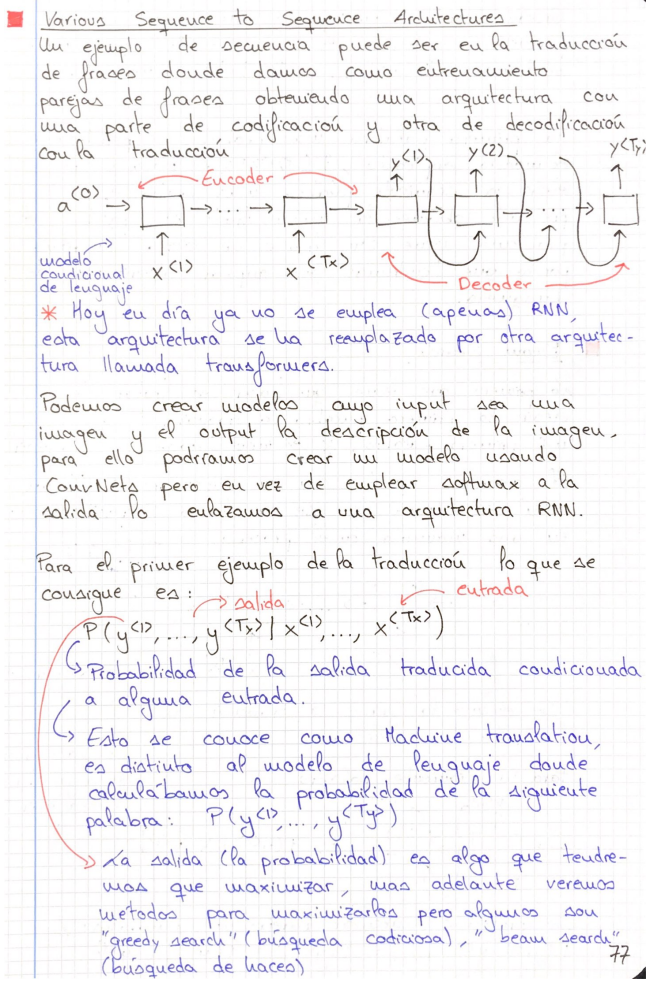 Various Sequence to Sequence Architectures
Un ejemplo de secuencia puede ser en la traducción
de frases donde damos como entrenamiento
parejas de frases obteniendo una arquitectura con
una parte de codificación y otra de decodificación
con la traducción
y<1> y(2) y<Ty>
Encoder
a<0> → → ... → →
x<1> x<Tx>
modelo
condicional
de lenguaje
Decoder
* Hoy en día ya no se emplea (apenas) RNN,
esta arquitectura se ha reemplazado por otra arquitec-
tura llamada transformers.
Podemos crear modelos cuyo input sea una
imagen y el output la descripción de la imagen,
para ello podríamos crear un modelo usando
ConvNets pero en vez de emplear softmax a la
salida lo enlazamos a una arquitectura RNN.
Para el primer ejemplo de la traducción lo que se
consigue es:
salida entrada
P(y<1>, ..., y<Ty> | x<1>, ..., x<Tx>)
Probabilidad de la salida traducida condicionada
a alguna entrada.
Esto se conoce como Machine translation,
es distinto al modelo de lenguaje donde
calculábamos la probabilidad de la siguiente
palabra: P(y<1>, ..., y<Ty>)
La salida (la probabilidad) es algo que tendre-
mos que maximizar, mas adelante veremos
métodos para maximizarlos pero algunos son
"greedy search" (búsqueda codiciosa), "beam search"
(búsqueda de haces)
77